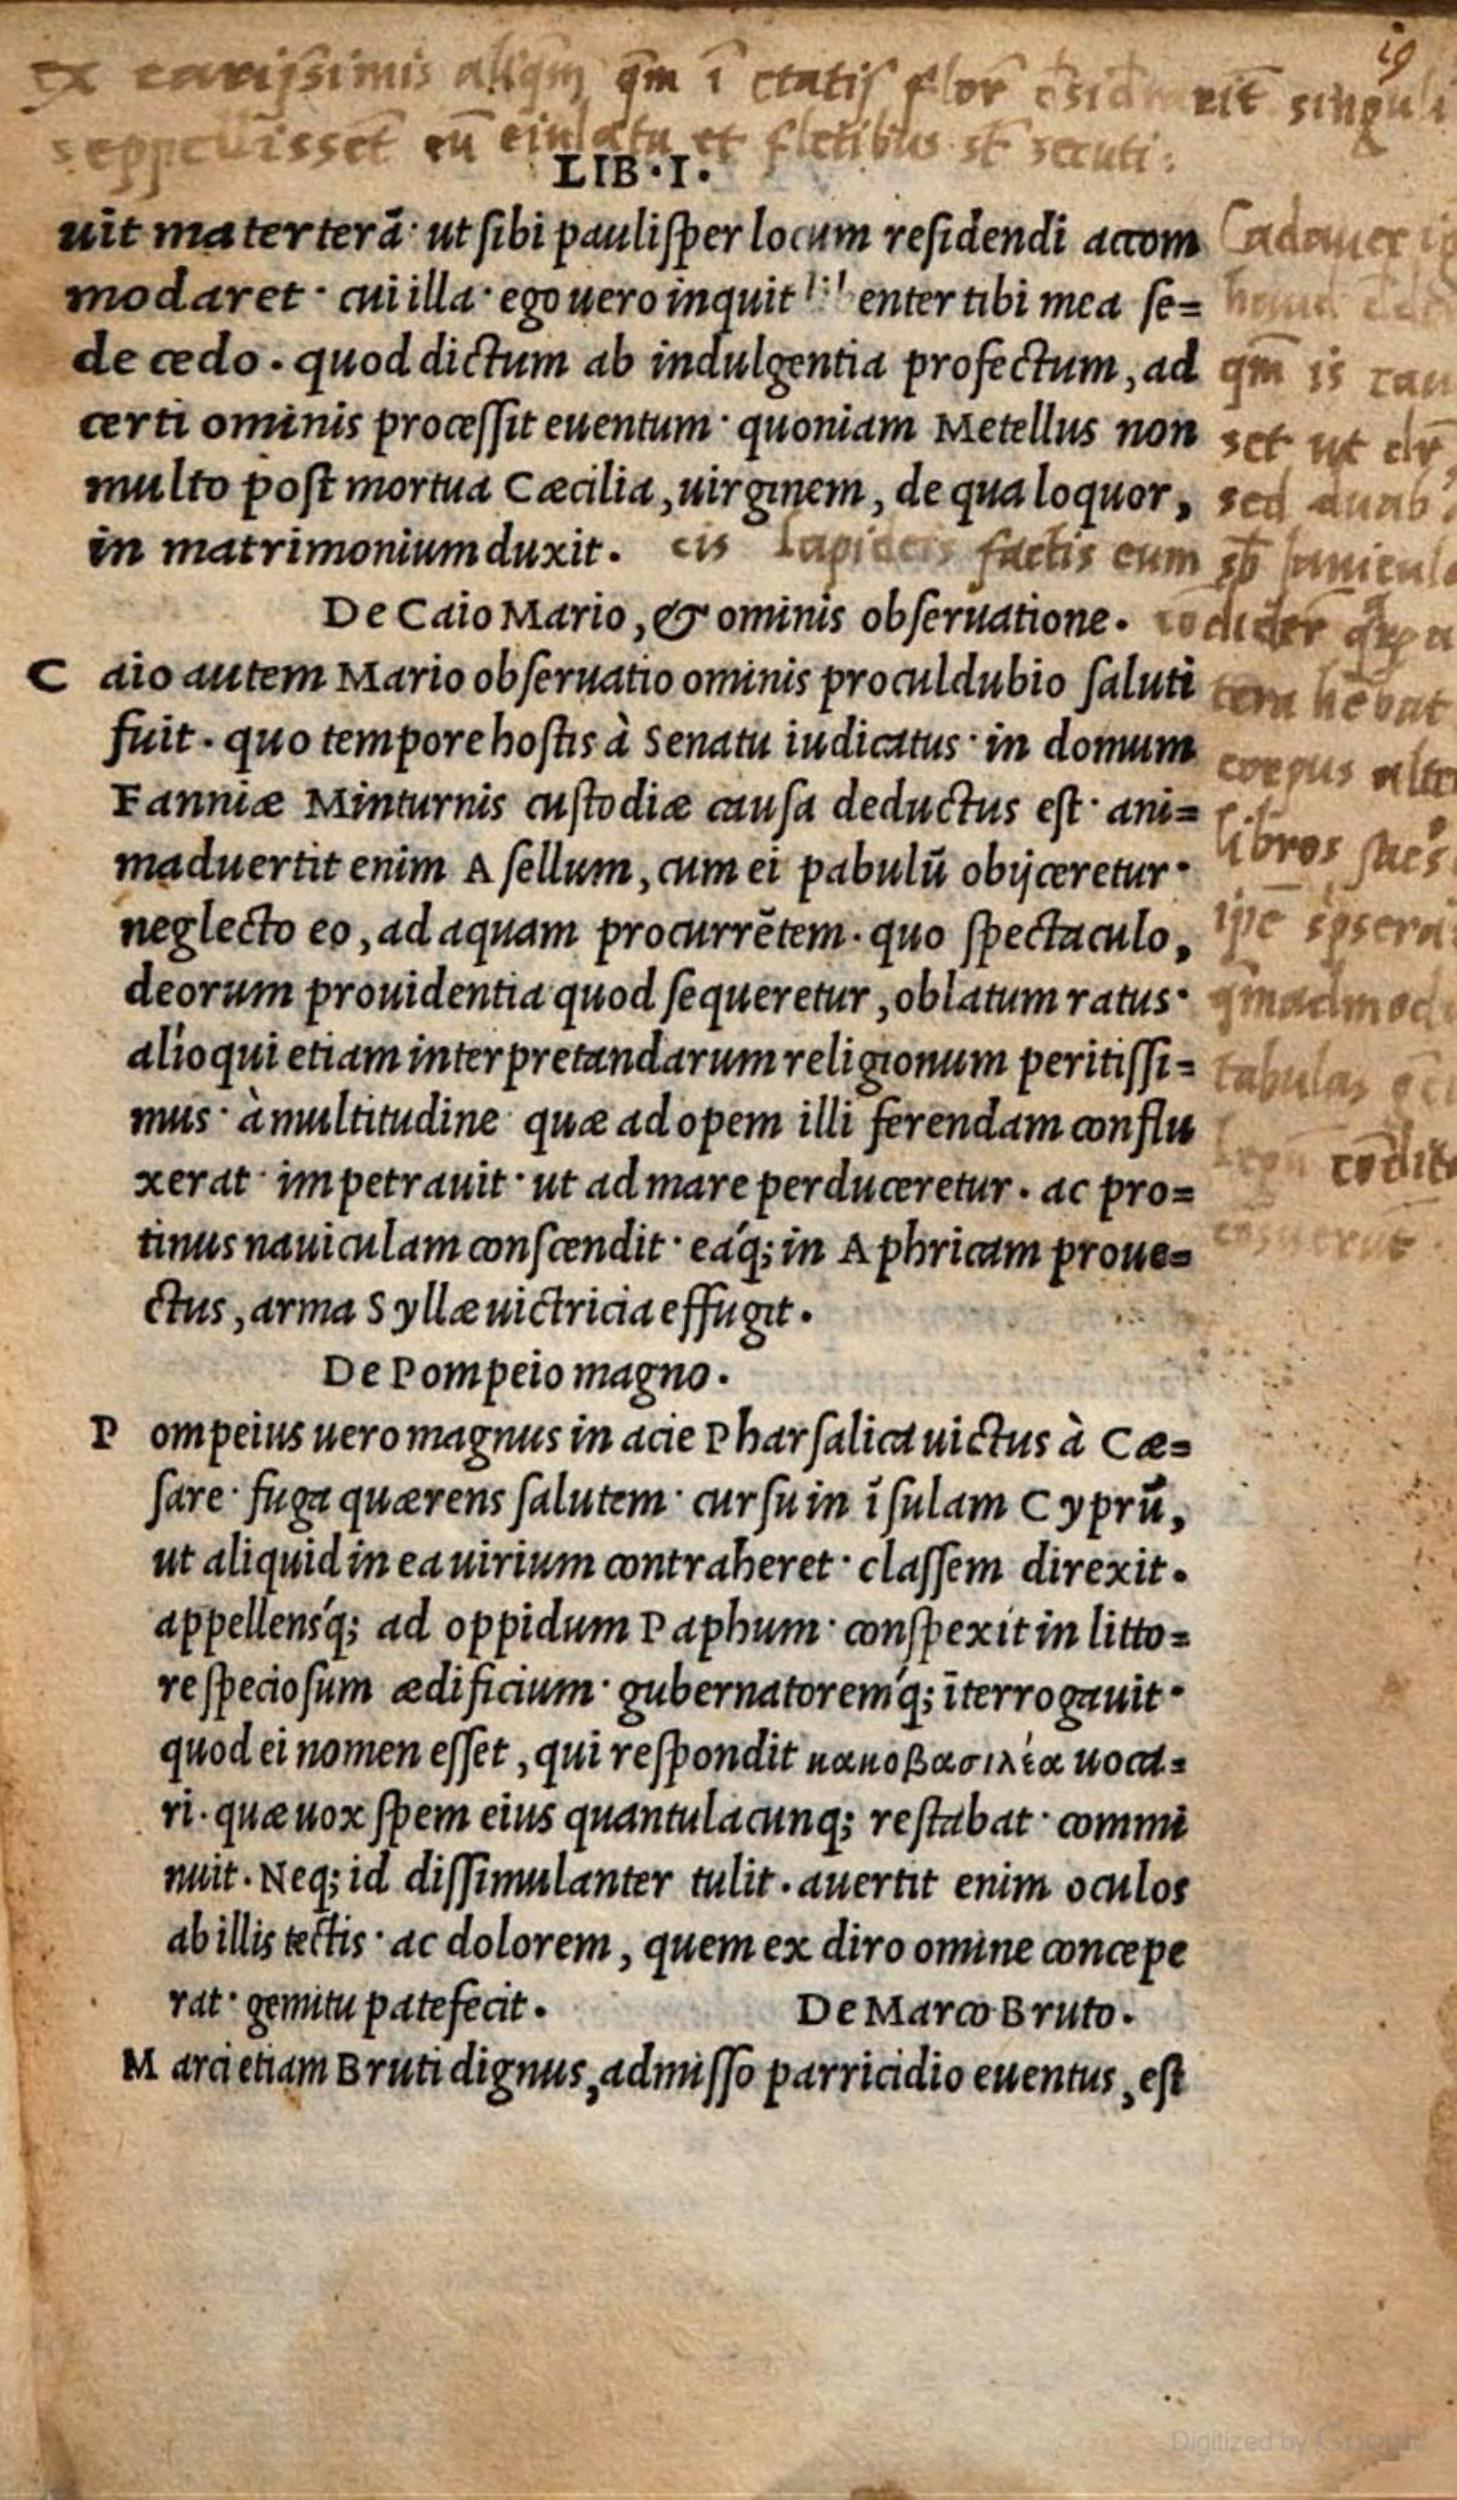 19
ex carissimis aliq̄m q̄m ī etatis flor
seppelissēt eū eiulatu et fletibus st̄ secuti:
LIB.I.
uit materterā· ut ſibi pauliſper locum reſidendi accom
modaret· cui illa· ego uero inquit enter tibi mea ſe=
de cedo. quod dictum ab indulgentia profectum, ad
certi ominis proceſſit euentum· quoniam Metellus non
multo poſt mortua Cæcilia, uirginem, de qua loquor,
in matrimonium duxit.
cis lapideis factis eum sb Ianicul
De Caio Mario, & ominis obſeruatione.
C aio autem Mario obſeruatio ominis proculdubio ſaluti
fuit. quo tempore hoſtis à Senatu iudicatus· in domum
Fanniæ Minturnis cuſtodiæ cauſa deductus eſt· ani=
maduertit enim Aſellum, cum ei pabulū obijceretur·
neglecto eo, ad aquam procurrētem. quo ſpectaculo,
deorum prouidentia quod ſequeretur, oblatum ratus·
alioqui etiam interpretandarum religionum peritiſſi=
mus· à multitudine quæ ad opem illi ferendam conflu
xerat· impetrauit· ut ad mare perduceretur. ac pro=
tinus nauiculam conſcendit· eáq; in Aphricam proue=
ctus, arma Syllæ uictricia effugit.
De Pompeio magno.
P ompeius uero magnus in acie Pharſalica uictus à Cæ=
ſare· fuga quærens ſalutem· curſu in īſulam Cyprū,
ut aliquid in ea uirium contraheret· claſſem direxit.
appellensq́; ad oppidum Paphum· conſpexit in litto=
re ſpecioſum ædificium· gubernatoremq́; īterrogauit·
quod ei nomen eſſet, qui reſpondit κακοβασιλέα uoca=
ri. quæ uox ſpem eius quantulacunq; reſtabat· commi
nuit. Neq; id diſſimulanter tulit. auertit enim oculos
ab illis tectis· ac dolorem, quem ex diro omine concepe
rat· gemitu patefecit.
De Marco Bruto.
M arci etiam Bruti dignus, admiſſo parricidio euentus, eſt
Cadauer
qm̄ is
set ut
sed duab
corpus alte
libros
tabulas
Digitized by Google